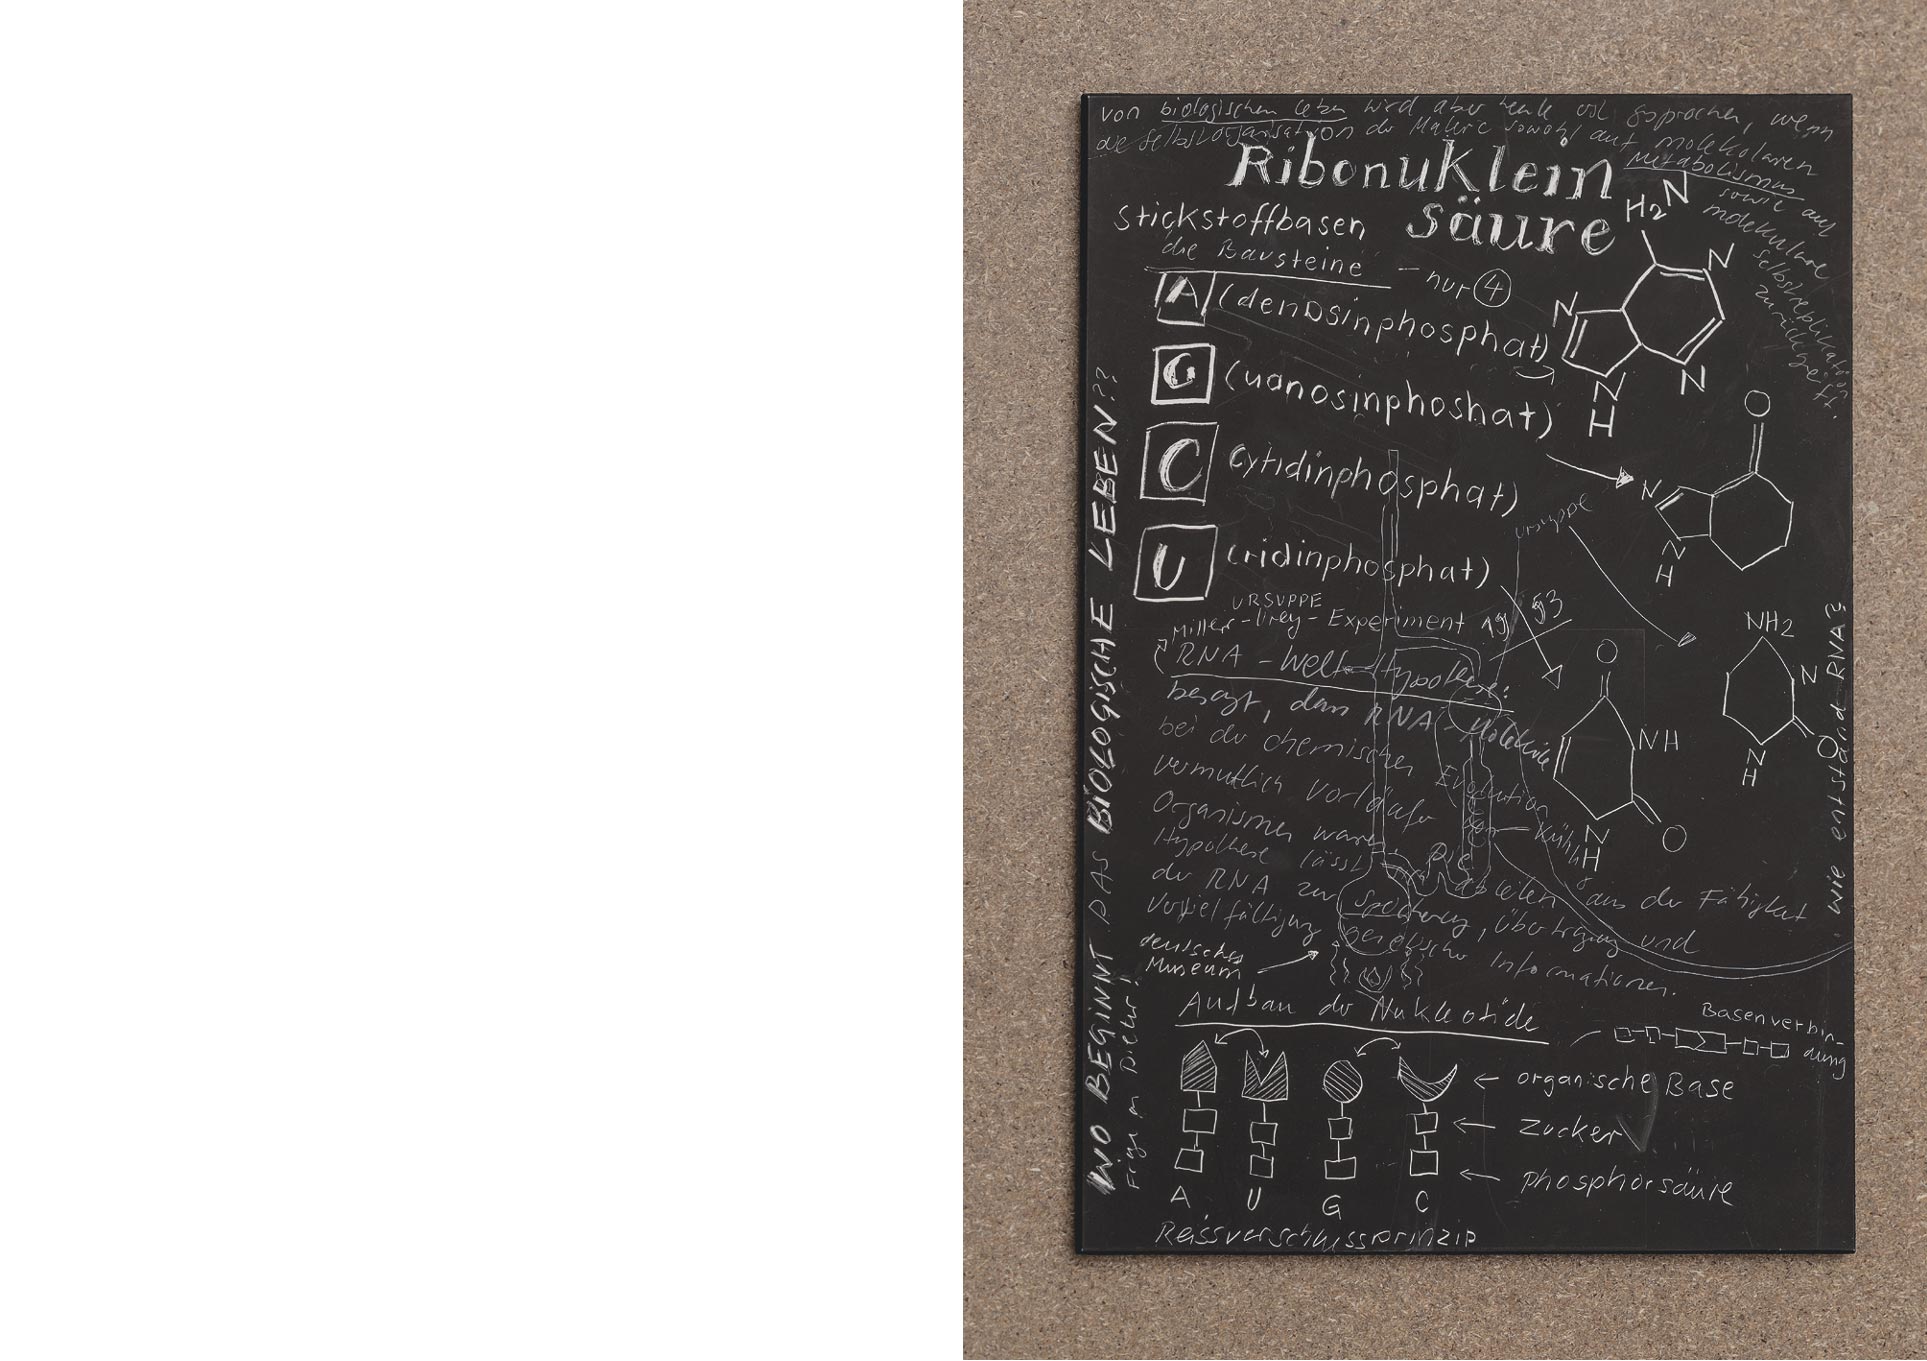 von biologischem Leben wird aber heute oft gesprochen, wenn
die Selbstorganisation der Materie sowohl auf molekularen
Metabolismus
sowie auf
molekulare
Selbstreplikation
zurückgreift.
Ribonuklein
säure
Stickstoffbasen
die Bausteine
– nur 4
A (denosinphosphat)
G (uanosinphoshat)
C cytidinphosphat)
U (ridinphosphat)
H2N
N
N
N
N
H
O
N
N
H
Ursuppe
URSUPPE
Miller-Urey-Experiment 1953
RNA-Welt-Hypothese:
besagt, dass RNA-Moleküle
bei der chemischen Evolution
vermutlich Vorläufer von
Organismen waren. Die
Hypothese lässt sich ableiten aus der Fähigkeit
der RNA zur Speicherung, Übertragung und
Vervielfältigung genetischer Informationen.
O
NH
O
N
H
NH2
N
O
N
H
deutsches
Museum
Aufbau der Nukleotide
Basenverbin-
dung
organische Base
Zucker
phosphorsäure
A U G C
Reissverschlussprinzip
WO BEGINNT DAS BIOLOGISCHE LEBEN??
wie entstand RNA?